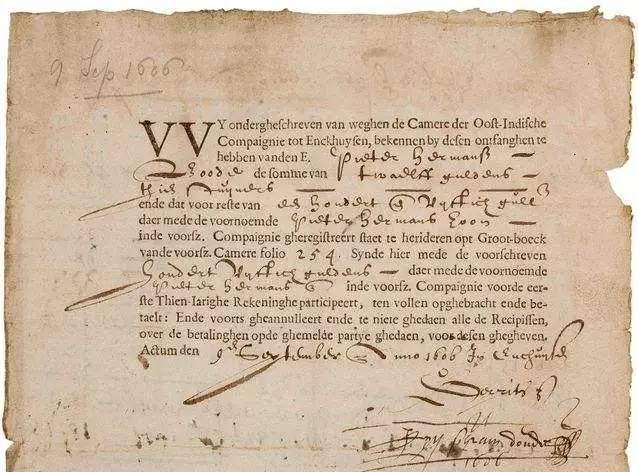 9 Sep 1606
VVY ondergheschreven van weghen de Camere der Oost-Indische
Compaignie tot Enckhuysen, bekennen by desen ontfanghen te
hebben vanden E. Pieter Hermansz
de somme van twaelff guldens
thien stuyvers
ende dat voor reste van een hondert en vyftich gull
daer mede de voornoemde Pieter Hermans zoon
inde voorsz. Compaignie gheregistreert staet te herideren opt Groot-boeck
vande voorsz. Camere folio 254. Synde hier mede de voorschreven
hondert vyftich guldens daer mede de voornoemde
Pieter Hermans inde voorsz. Compaignie voorde eer-
ste Thien-Iarighe Rekeninghe participeert, ten vollen opghebracht ende be-
taelt: Ende voorts gheannulleert ende te niete ghedaen alle de Recipissen,
over de betalinghen opde ghemelde partye ghedaen, voor desen ghegheven.
Actum den 9en September Anno 1606
1606